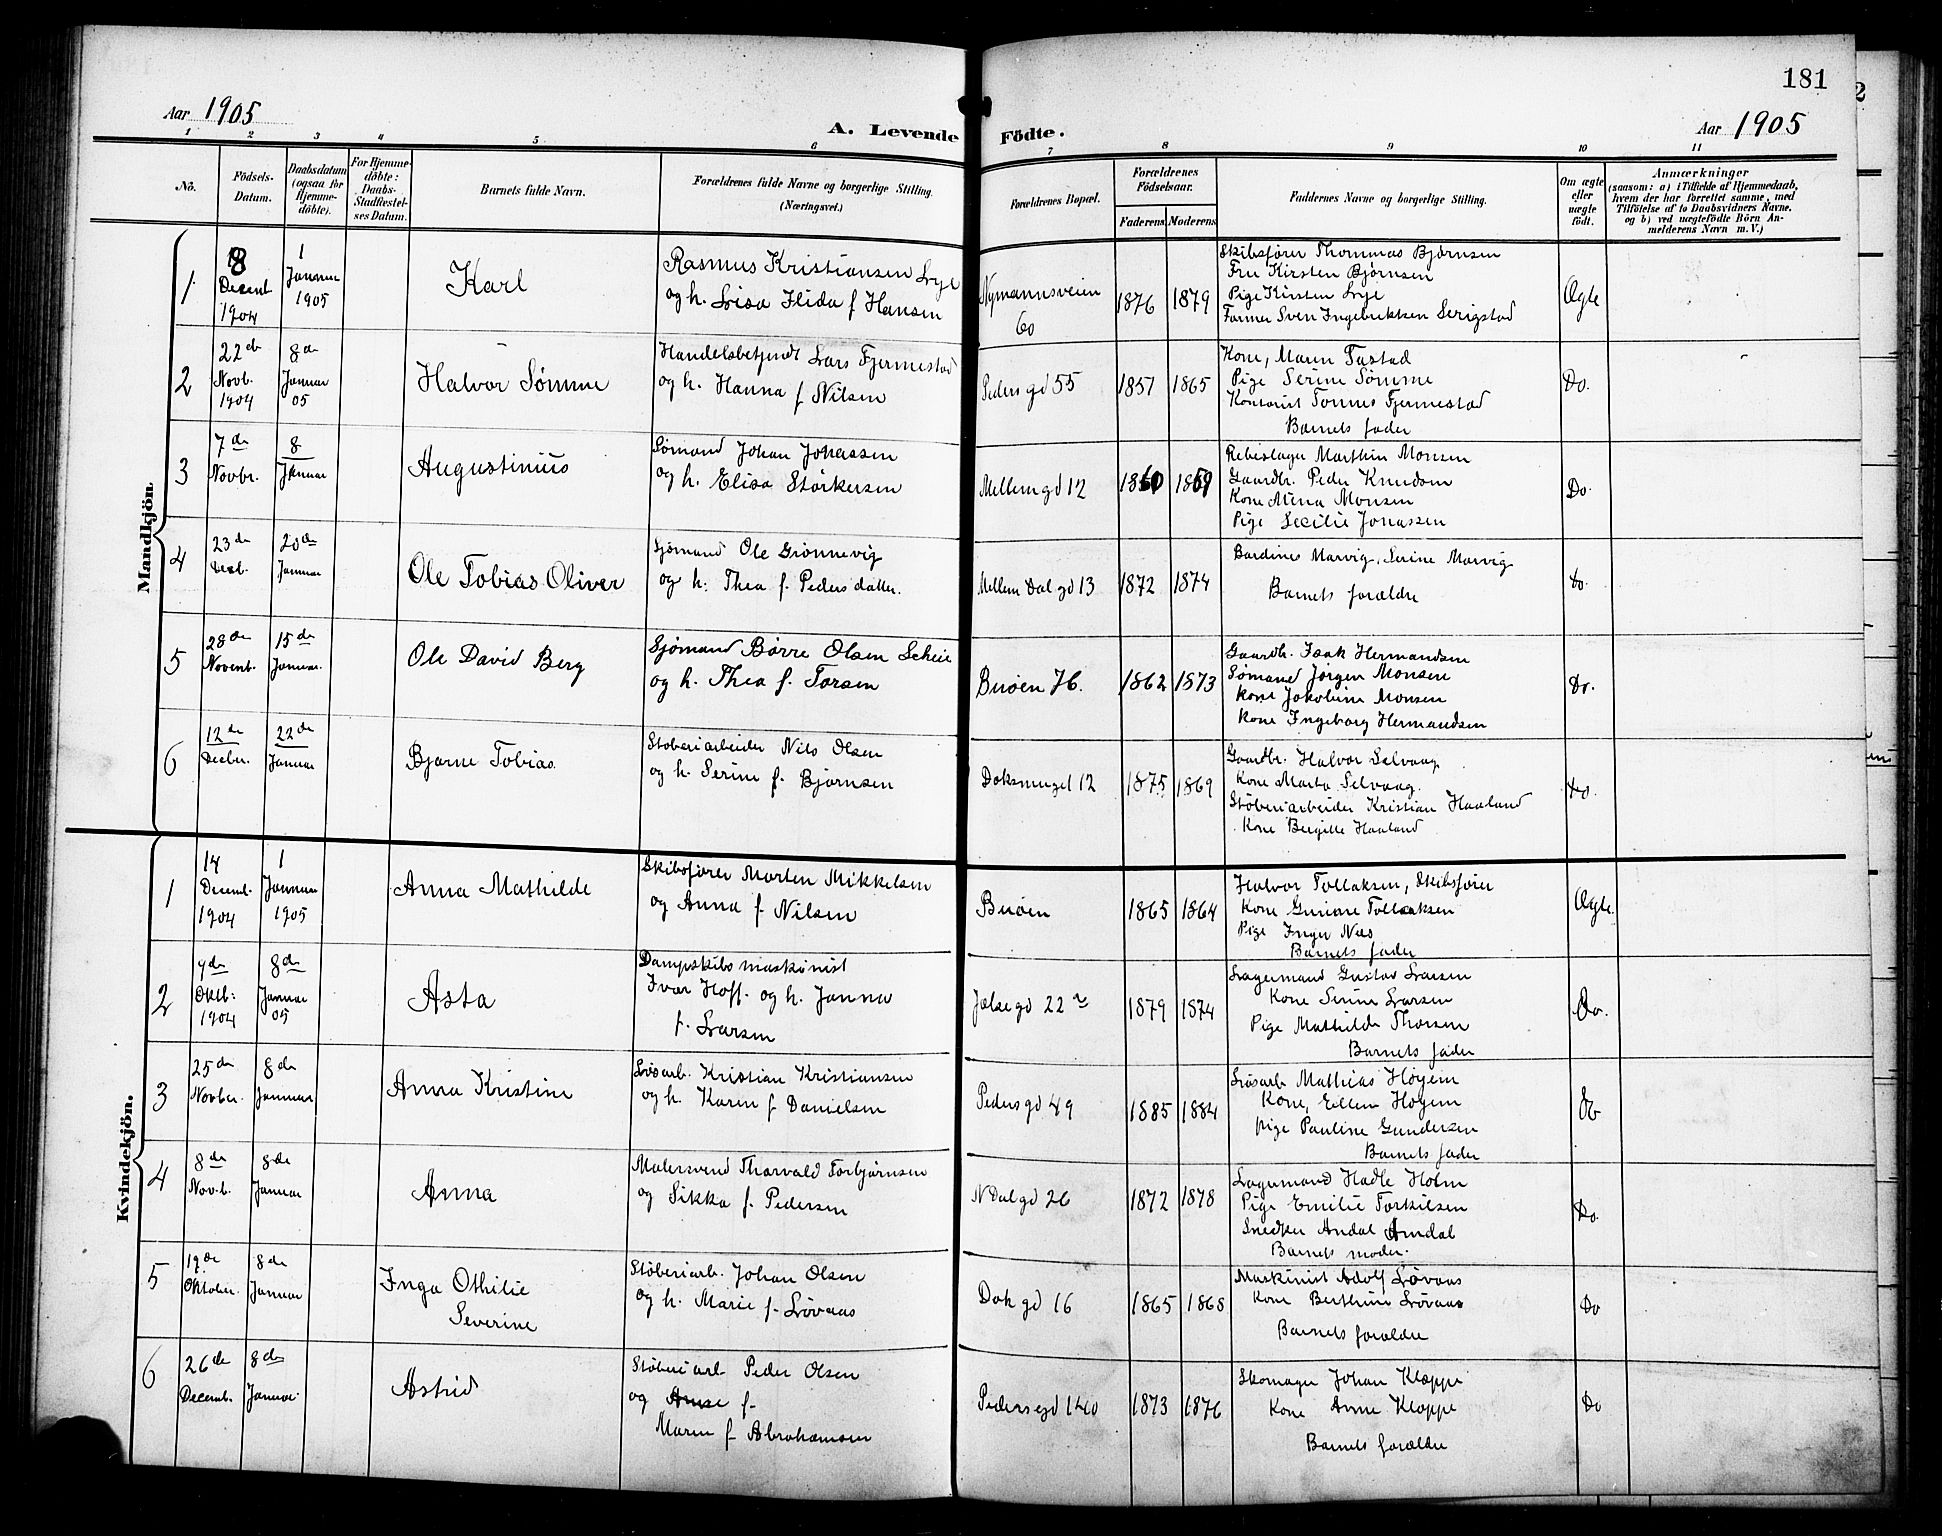 181
Aar 1905
A. Levende Födte.
Aar 1905
1 2 3 4 5 6 7 8 9 10 11
No.
Födsels-
Datum.
Daabsdatum
(ogsaa för
Hjemme-
döbte).
For Hjemme-
döbte:
Daabs-
Stadfæstel-
ses Datum.
Barnets fulde Navn.
Forældrenes fulde Navne og borgerlige Stilling.
(Næringsvei.)
Forældrenes Bopæl.
Forældrenes
Födselsaar.
Faderens Moderens
Faddernes Navne og borgerlige Stilling.
Om ægte
eller
uægte
födt.
Anmærkninger
(saasom: a) i Tilfælde af Hjemmedaab,
hvem der har forrettet samme, med
Tilföielse af to Daabsvidners Navne.
og b) ved uægtefödte Börn An-
melderens Navn m. V.)
Mandkjön
1
8
Decemt
1904
1
Januar
1905
Karl
Rasmus Kristiansen Lye
og h. Lisa Hida f Hansen
Nymannsveien
60
1876 1879
Skibsfører Thommas Bjørnsen
Fru Kirsten Bjørnsen
Pige Kirsten Lye
Farmer Sven Ingebriktsen Serigstad
Ægte
2
22de
Novb.
1904
8de
Januar
05
Halvor Sømme
Handelsbetjent Lars Fjermestad
og h. Hanna f Nilsen
Pedersgd 55
1857 1865
Kone, Maren Tastad
Pige Serine Sømme
Kontorist Tønnes Fjermestad
Barnets fader
Do.
3
7de
Novbr.
8
Januar
Augustinius
Sømand Johan Johassen
og h. Elisa Størkersen
Mellemgd 12
1860 1869
Rebslager Marthin Monsen
Gaardbr. Peder Knudsen
Kone Mina Monsen
Pige Secilie Jonassen
Do
4
23de
Decb.
20de
Januar
Ole Tobias Oliver
Sjømand Ole Grønnevig
og h. Thea f. Pedersdatter.
Mellem Dalgd 13
1872 1874
Bardines Marvig, Serine Marvig
Barnets forældre
Do.
5
28de
Novent.
15de
Januar.
Ole David Berg
Sjømand Børre Olsen Scheie
og h. Thea f. Torsen
Buøen H.
1862 1873
Gaardbr. Isak Hermandsen
Sømand Jørgen Monsen
Kone Jakobine Monsen
Kone Ingeborg Hermandsen
Do.
6
12de
Decbr.
22de
Januar
Bjarne Tobias
Støberiarbeider Nils Olsen
og h. Serine f. Bjørnsen
Doksmuget 12
1875 1869
Gaardbr. Halvor Selvaag
Kone Marta Selvaag.
Støberiarbeider Kristian Haaland
Kone Bergitte Haaland
Do.
Kvindekjön.
1
14
Decemt.
1904
1
Januar
1905
Anna Mathilde
Skibsfører Morten Mikkelsen
og Anna f. Nilsen
Buøen
1865 1864
Halvor Tollaksen, Skibsfører
Kone Guriane Tollaksen
Pige Inger Næs
Barnets fader
Ægte.
2
9de
Oktb:
1904
8de
Januar
05
Asta
Dampskibsmaskinist
Ivar Hoff. og h. Janna
f. Larsen
Jælsegd 22
1879 1874
Lagermand Gustav Larsen
Kone Serine Larsen
Pige Mathilde Thorsen
Barnets fader
Do.
3
25de
Novber.
8de
Januar
Anna Kristine
Løsarb. Kristian Kristiansen
og h. Karen f Danielsen
Pedersgd 49
1885 1884
Løsarb Mathias Høyem
Kone, Ellen Høyem
Pige Pauline Gundersen
Barnets fader
Do
4
8de
Novb.
8de
Januar
Anna
Malersvend Thorvald Torbjørnsen
og Sikka f. Pedersen
N Dalgd 26
1872 1878
Lagermand Hadle Holm
Pige Emilie Torkilsen
Snedker Andal Arndal
Barnets moder.
Do
5
19de
Oktober.
8de
Januar
Inga Othilie
Severine
Støberiarb. Johan Olsen
og h. Marie f. Løvaas
Dokgd 16
1865 1868
Maskinist Adolf Løvaas
Kone Berthine Løvaas
Barnets forældre
Do
6
26de
Decemb.
8de
Januar.
Astrid
Støberiarb Peder Olsen
og f-
Maren f Abrahamsen
Pedersgd 140
1873 1876
Skomager Johan Kloppe
Kone Anne Kloppe
Barnets forældre
Do